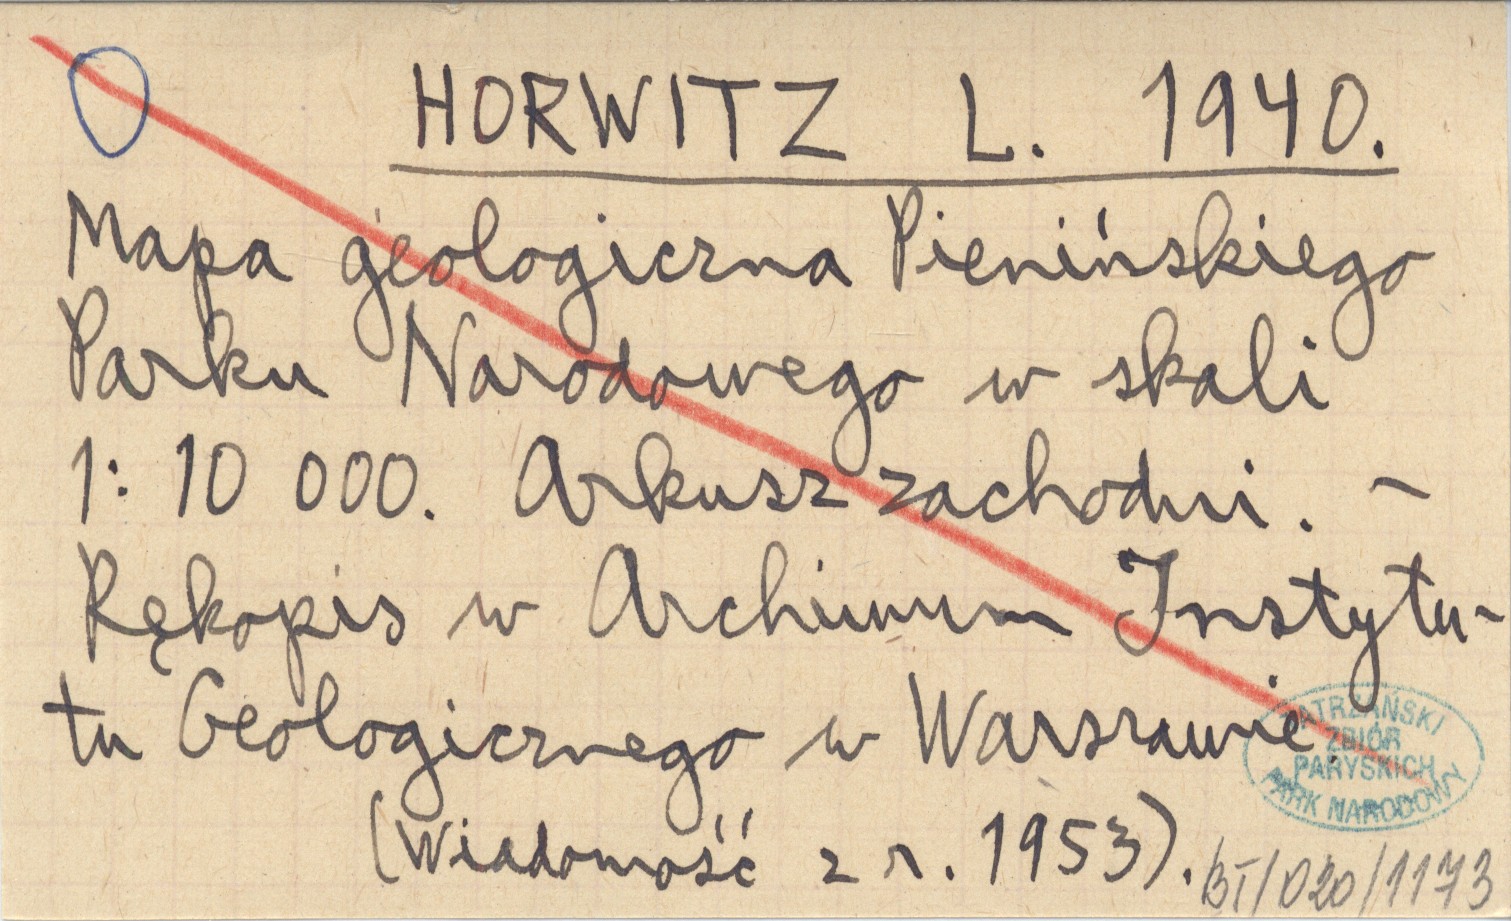 HORWITZ L. 1940.
Mapa geologiczna Pienińskiego
Parku Narodowego w skali
1:10 000. Arkusz zachodni. -
Rękopis w Archiwum Instytu-
tu Geologicznego w Warszawie.
(Wiadomość z r. 1953).
TATRZAŃSKI
ZBIÓR
PARYSKICH
PARK NARODOWY
BT/020/1173